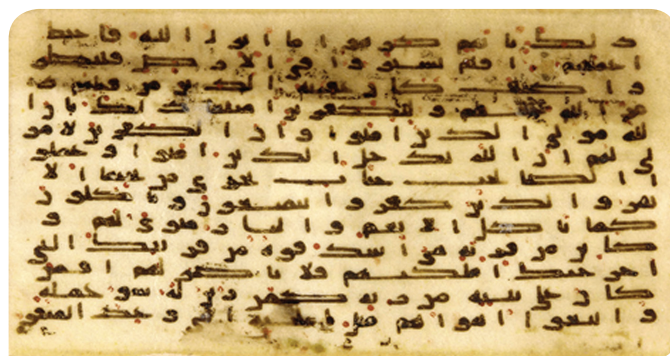 ذلك بانهم كرهوا ما انزل الله فاحبط
اعملهم افلم يسيروا في الارض فينظرو
ا كيف كان عقبة الذين من قبلهم د
مر الله عليهم وللكفرين امثلها ذلك بان ا
لله مولى الذين امنوا وان الكفرين لا مو
لى لهم ان الله يدخل الذين امنوا وعملو
ا الصلحت جنت تجري من تحتها الا
نهر والذين كفروا يتمتعون وياكلون
كما تاكل الانعم والنار مثوى لهم و
كاين من قرية هي اشد قوة من قريتك التي
اخرجتك اهلكنهم فلا ناصر لهم افمن
كان على بينة من ربه كمن زين له سو عمله
واتبعوا اهواهم مثل الجنة التي وعد المتقون